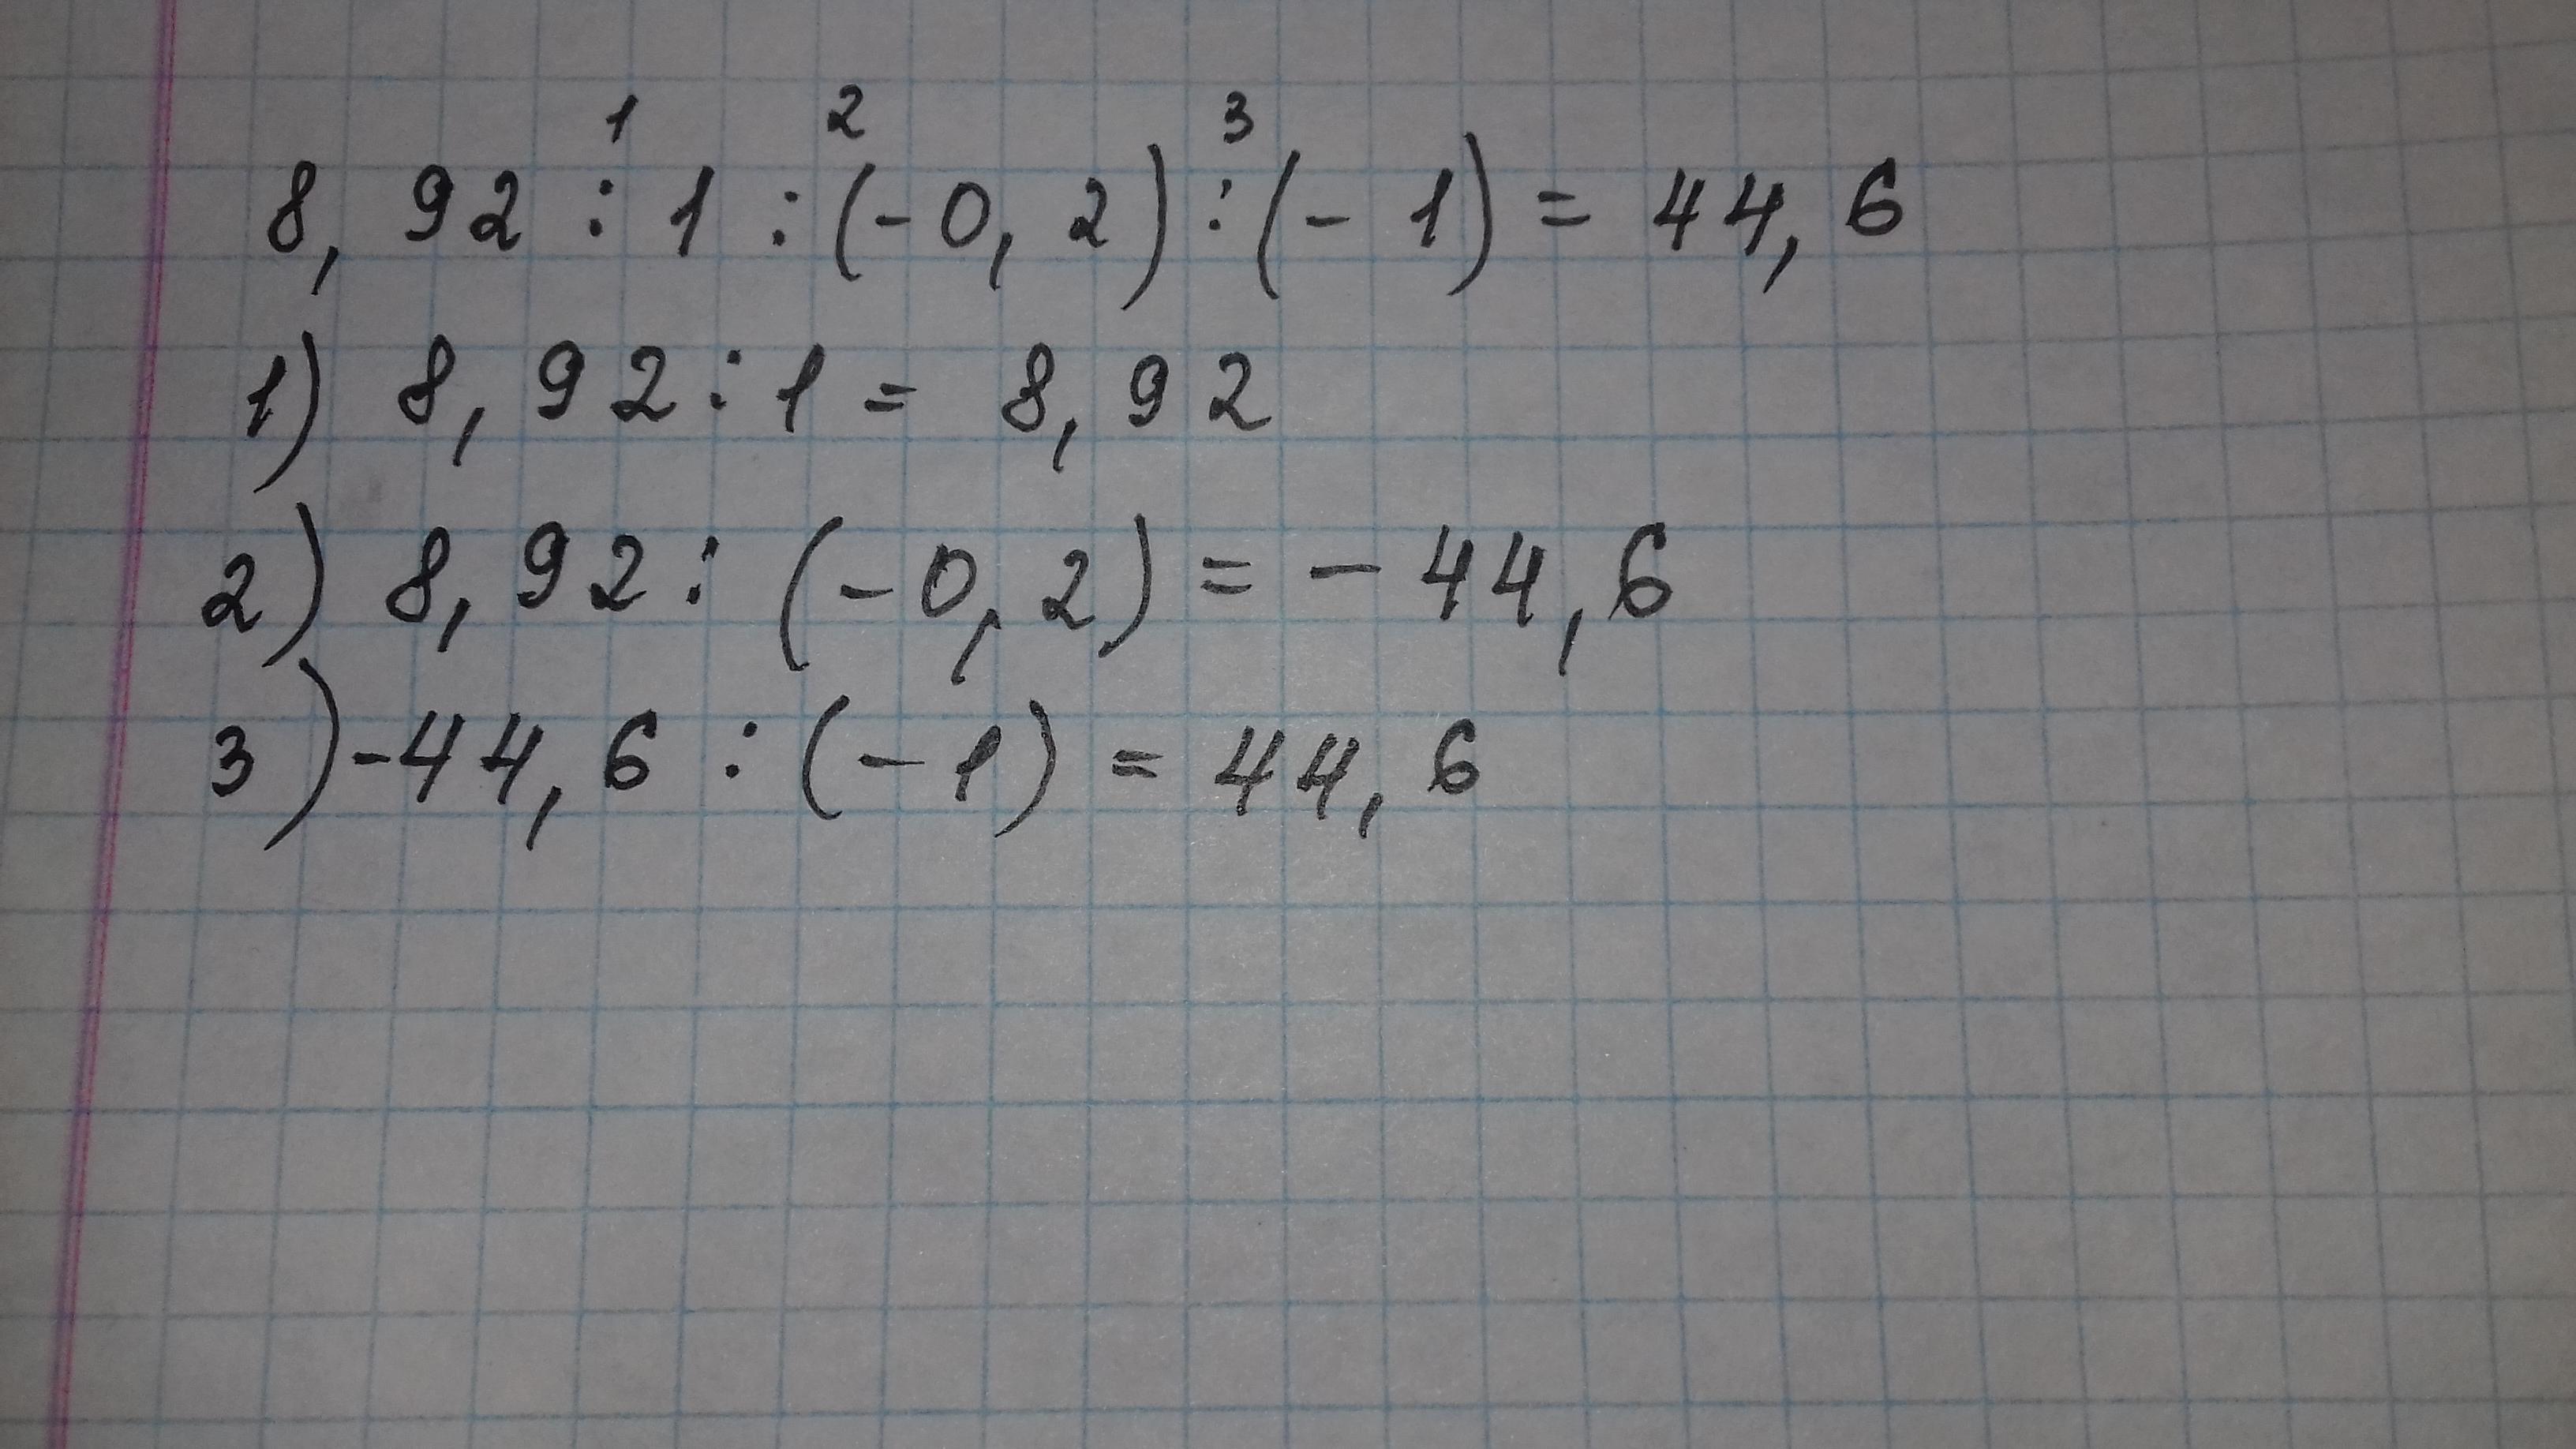 1 2 3
8,92 : 1 : (-0,2) : (-1) = 44,6
1) 8,92 : 1 = 8,92
2) 8,92 : (-0,2) = -44,6
3) -44,6 : (-1) = 44,6